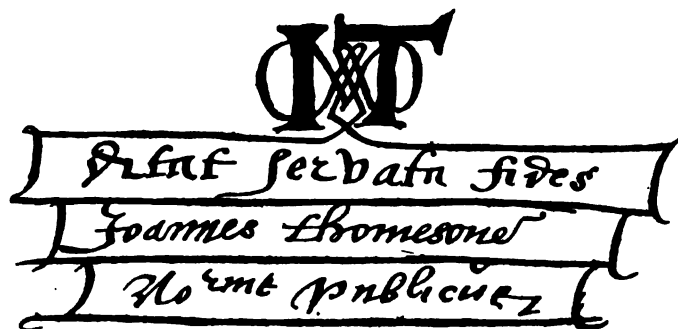 IT
Ditat servata fides
Joannes Thomesone
No^rius publicus